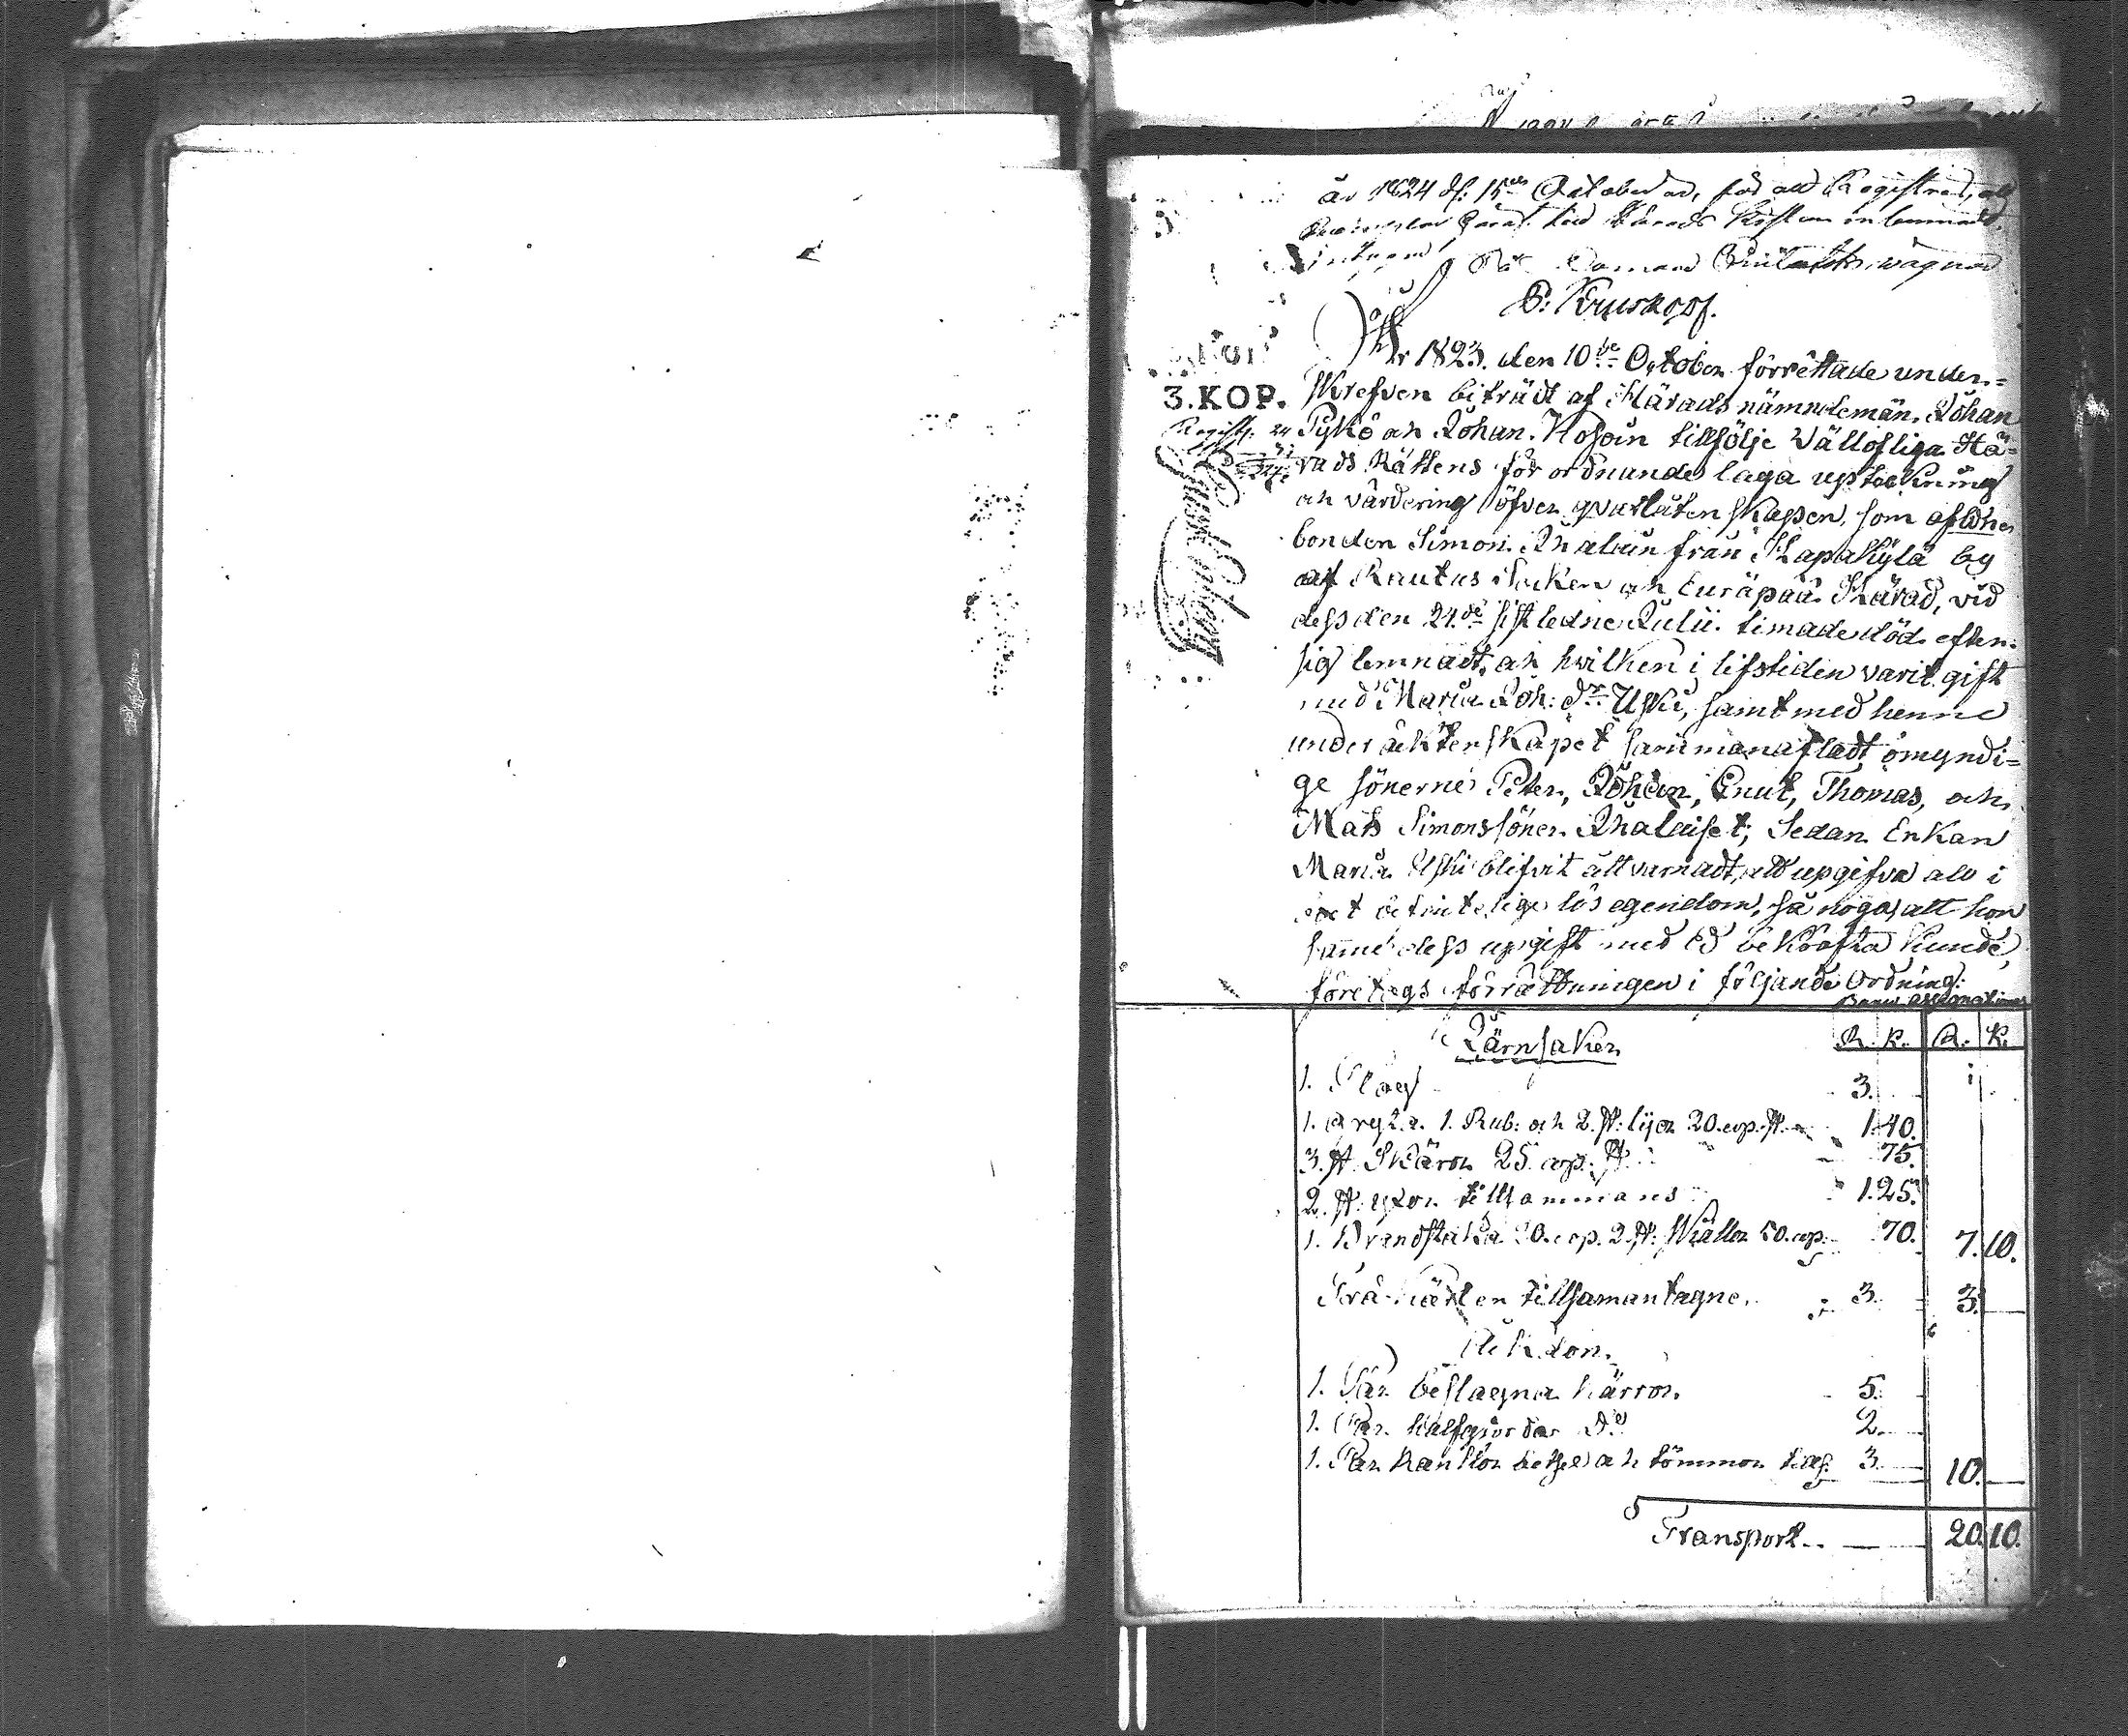 år 1824 d: 15de October, för att Registreras,
Exemplar häraf till Härads Kistan inlemnadt,
intygar
B: Kruskopf.
År 1823. den 10de October förrettade under=
3. KOP. skrefven biträdt af Härads nämndemän, Johan
Pykö och Johan. Kosoin tillfölje Vällofliga Hä=
rads Rättens förordnande laga upteckning
och värdering öfver qvarlåtenskapen, som afledne
bonden Simon. Ihalain från Kapakylä by
af Rautus Socken och Euräpää Härad, vid
dess den 24de sistledne Julii. timade död efter
sig lemnadt, och hvilken i lifstiden varit gift
med Maria Joh: dr Uski, samt med henne
under äktenskapet sammanafladt omyndi=
ge sönerne Peter, Johan, Cnut, Thomas, och
Mats Simonssöner Ihalaiset; Sedan Enkan
Maria Uski blifvit allvarnadt, att upgifva all i
boet befintelige lös egendom, så noga, att hon
samme dess upgift med Ed bekräfta kunde,
företogs förrättningen i följande Ordning:
Banco assignationer
Järnsaker R. K. R. K.
1. Plog 3.
1. 1. Rub: och 2. st: lijor 20. cop. st. 1.40.
3. st. Skäror 25. cop: st. 75.
2. st: yxor tillsammans 1.25.
1. Brandstaka 20. cop. 2. st: 50. cop: 70. 7.10.
Trä-kärlen tillsamantagne. 3. 3.
Åkdon.
1. Par beslagna kärror. 5.
1. Par. halfgiordar do 2.
1. Par Rankor betsel och tömmor 3. 10.
Transport.. 20.10.